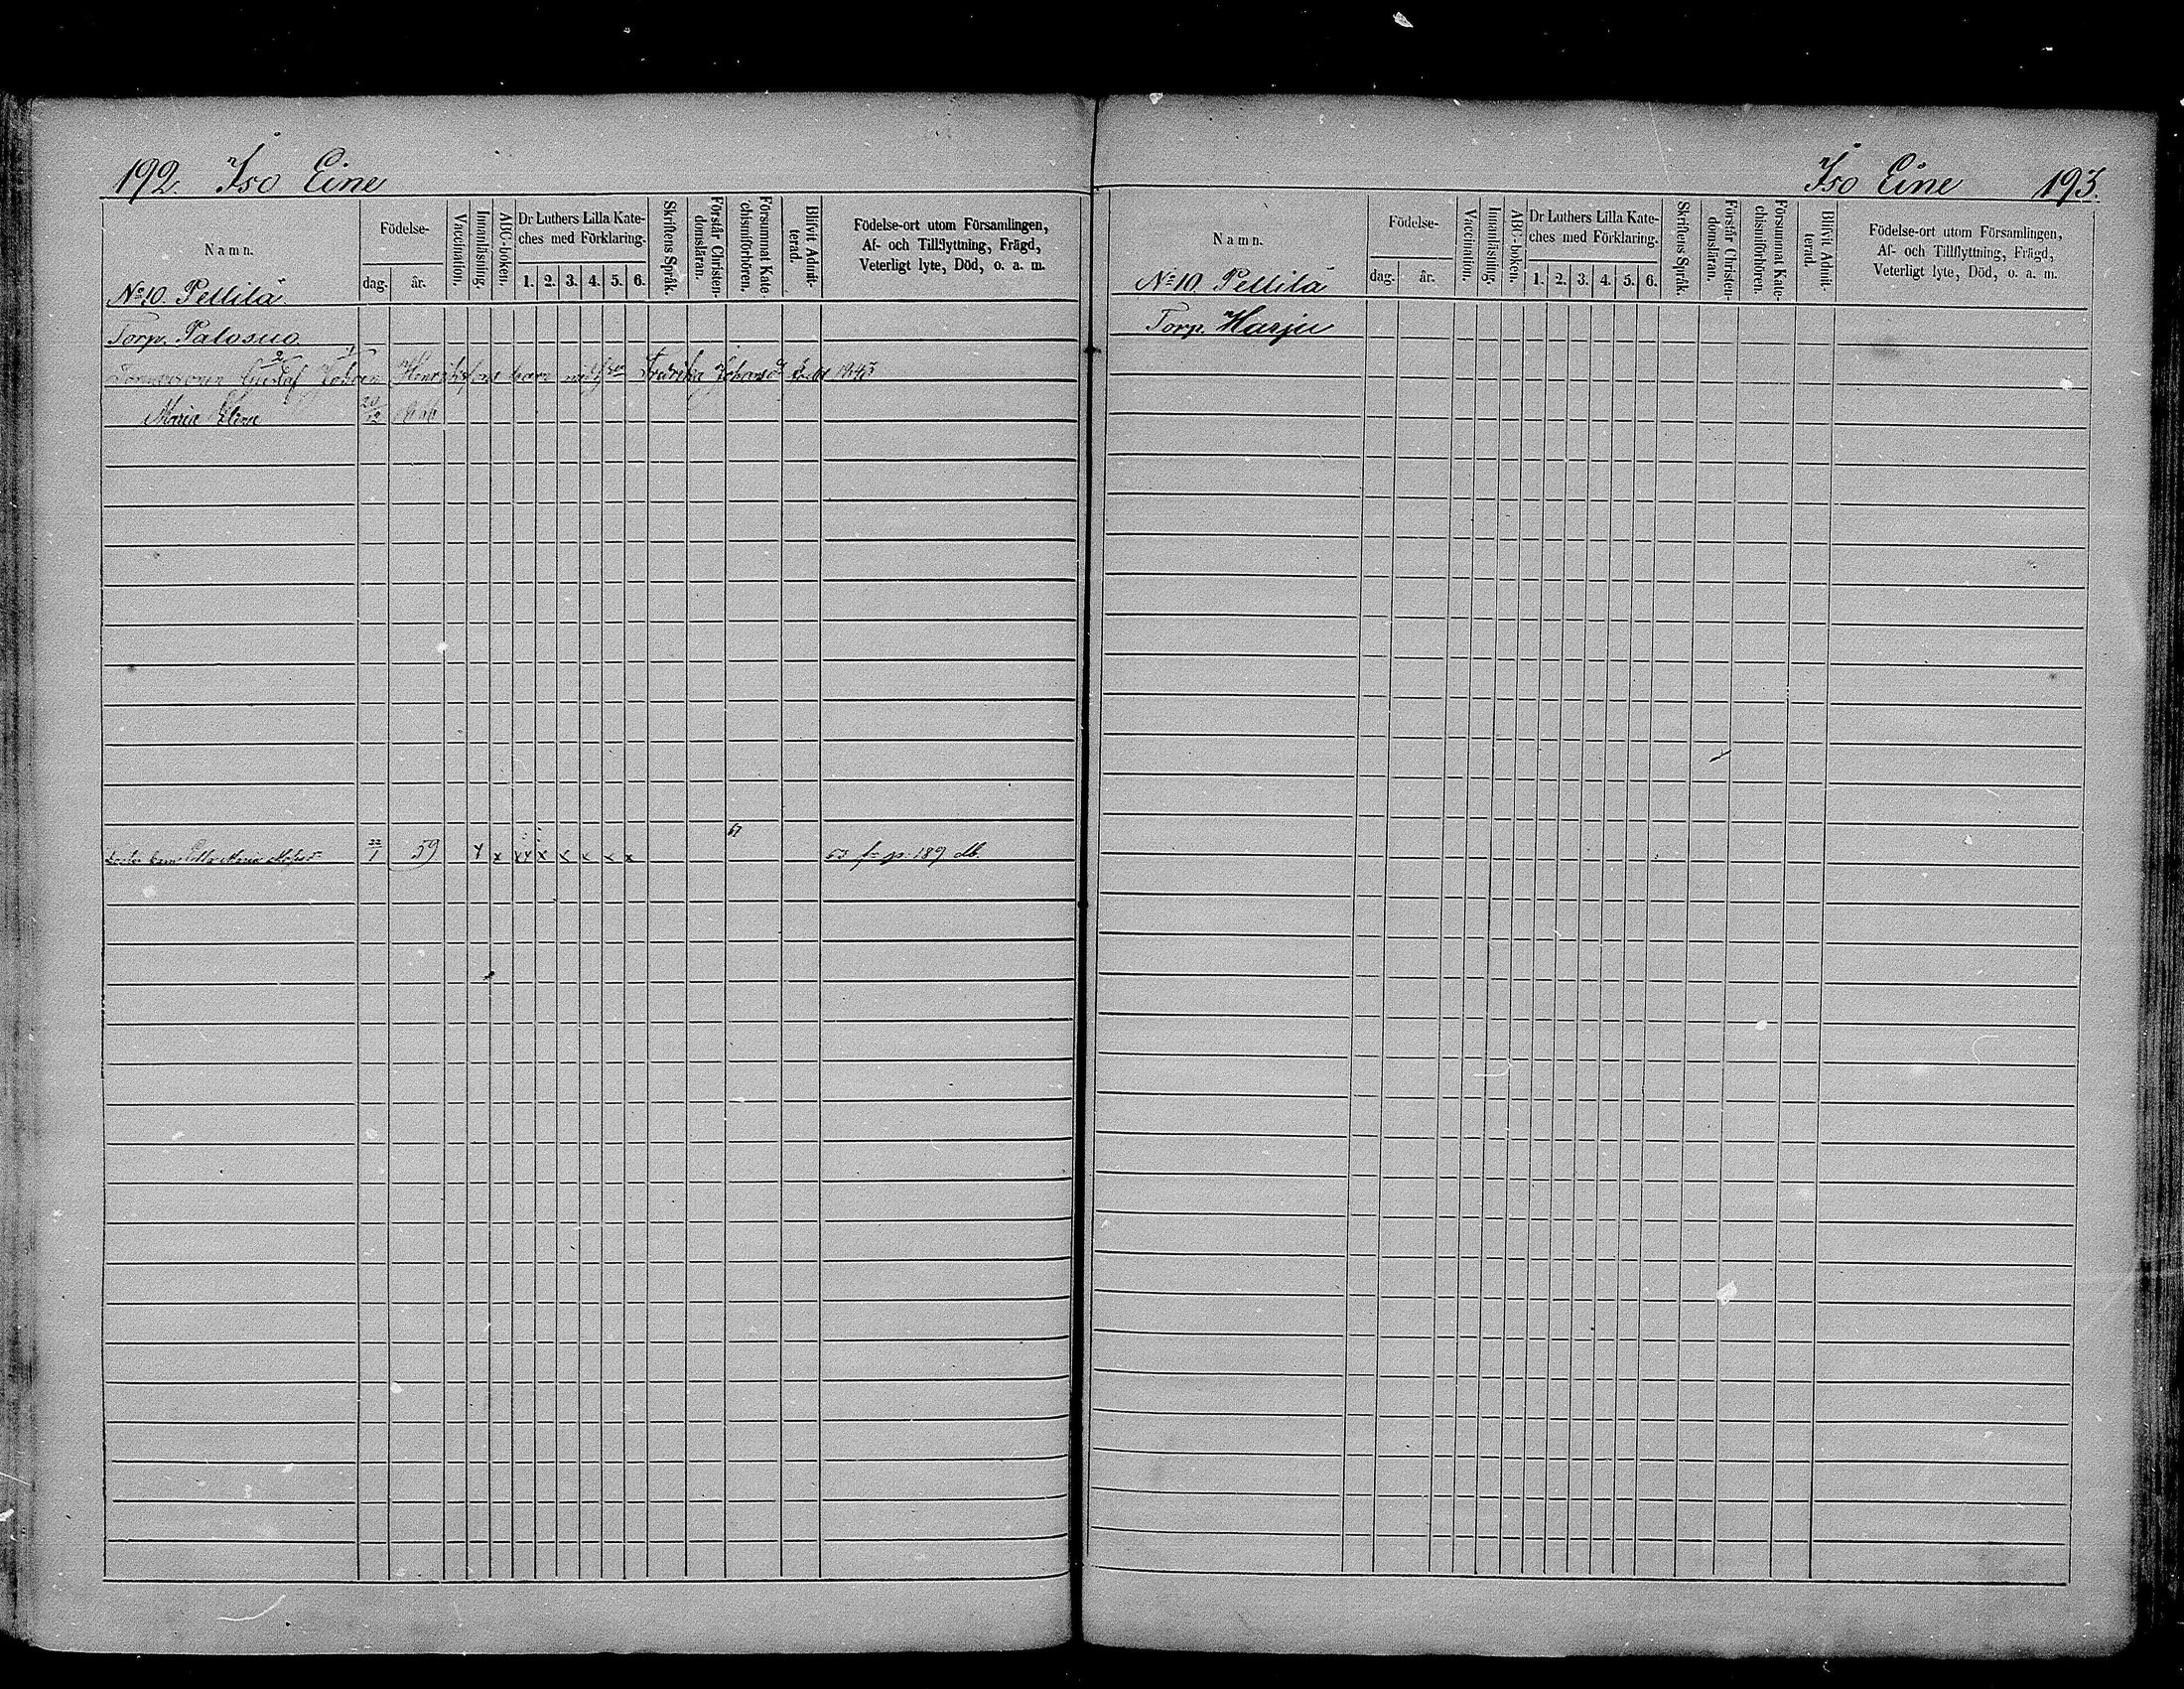 192. Iso Eine
Namn.
Födelse-
dag.
år.
Vaccination.
Innanläsning.
ABC-boken.
Dr Luthers Lilla Kate-
ches med Förklaring.
1. 2. 3. 4. 5. 6.
Skriftens Språk.
Förstår Christen-
domsläran.
Försummat Kate-
chismiförhören.
Blifvit Admit-
terad.
Födelse-ort utom Församlingen,
Af- och Tillflyttning, Frägd,
Veterligt lyte, Död, o. a. m.
No 10. Pellilä
Torp. Palosuo
Gustaf Henrikssons barn med Fredrika
Maria 20/12
Maria 22/1 59 x x x x x x x 67 63 fr p. 189 db.
Iso Eine 193.
Namn.
Födelse-
dag.
år.
Vaccination.
Innanläsning.
ABC-boken.
Dr Luthers Lilla Kate-
ches med Förklaring.
1. 2. 3. 4. 5. 6.
Skriftens Språk.
Förstår Christen-
domsläran.
Försummat Kate-
chismiförhören.
Blifvit Admit-
terad.
Födelse-ort utom Församlingen,
Af- och Tillflyttning, Frägd,
Veterligt lyte, Död, o. a. m.
No 10 Pellilä
Torp. Harju